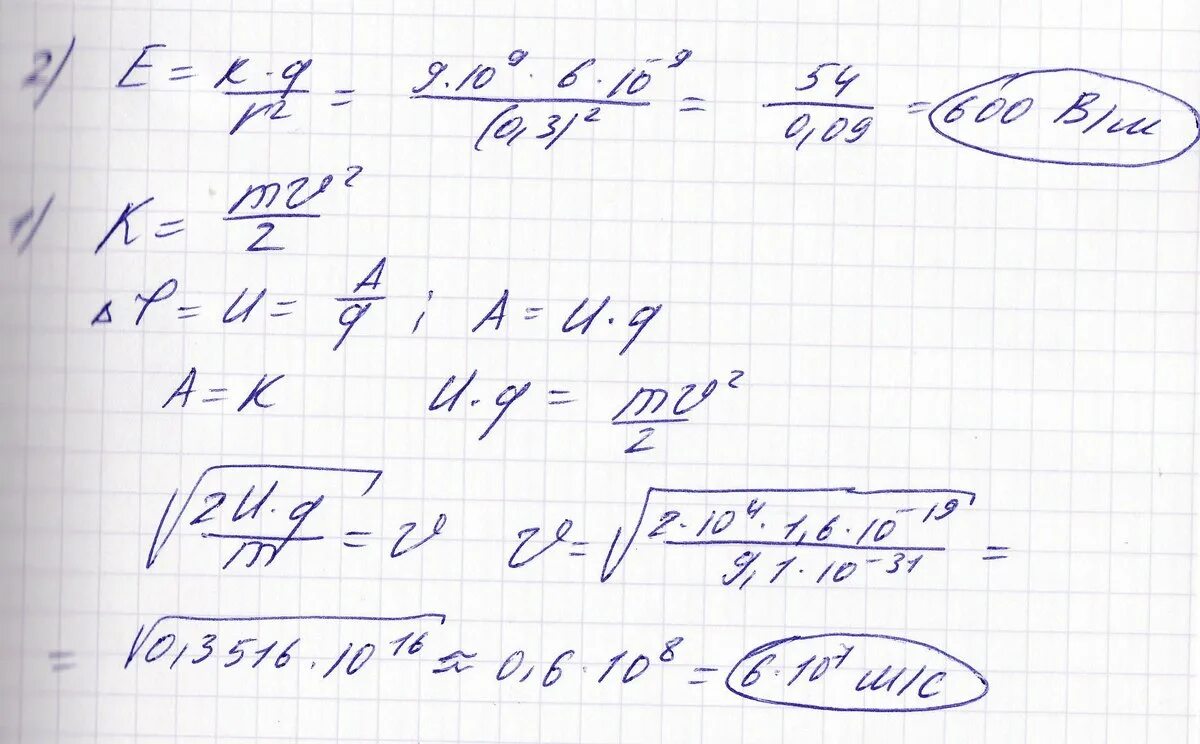 2) E = k·q/r² = 9·10⁹·6·10⁻⁹/(0,3)² = 54/0,09 = 600 В/м
1) K = mv²/2
Δφ = U = A/q ; A = U·q
A = K U·q = mv²/2
√(2U·q/m) = v v = √(2·10⁴·1,6·10⁻¹⁹/9,1·10⁻³¹) =
= √(0,3516·10¹⁶) ≈ 0,6·10⁸ = 6·10⁷ м/с